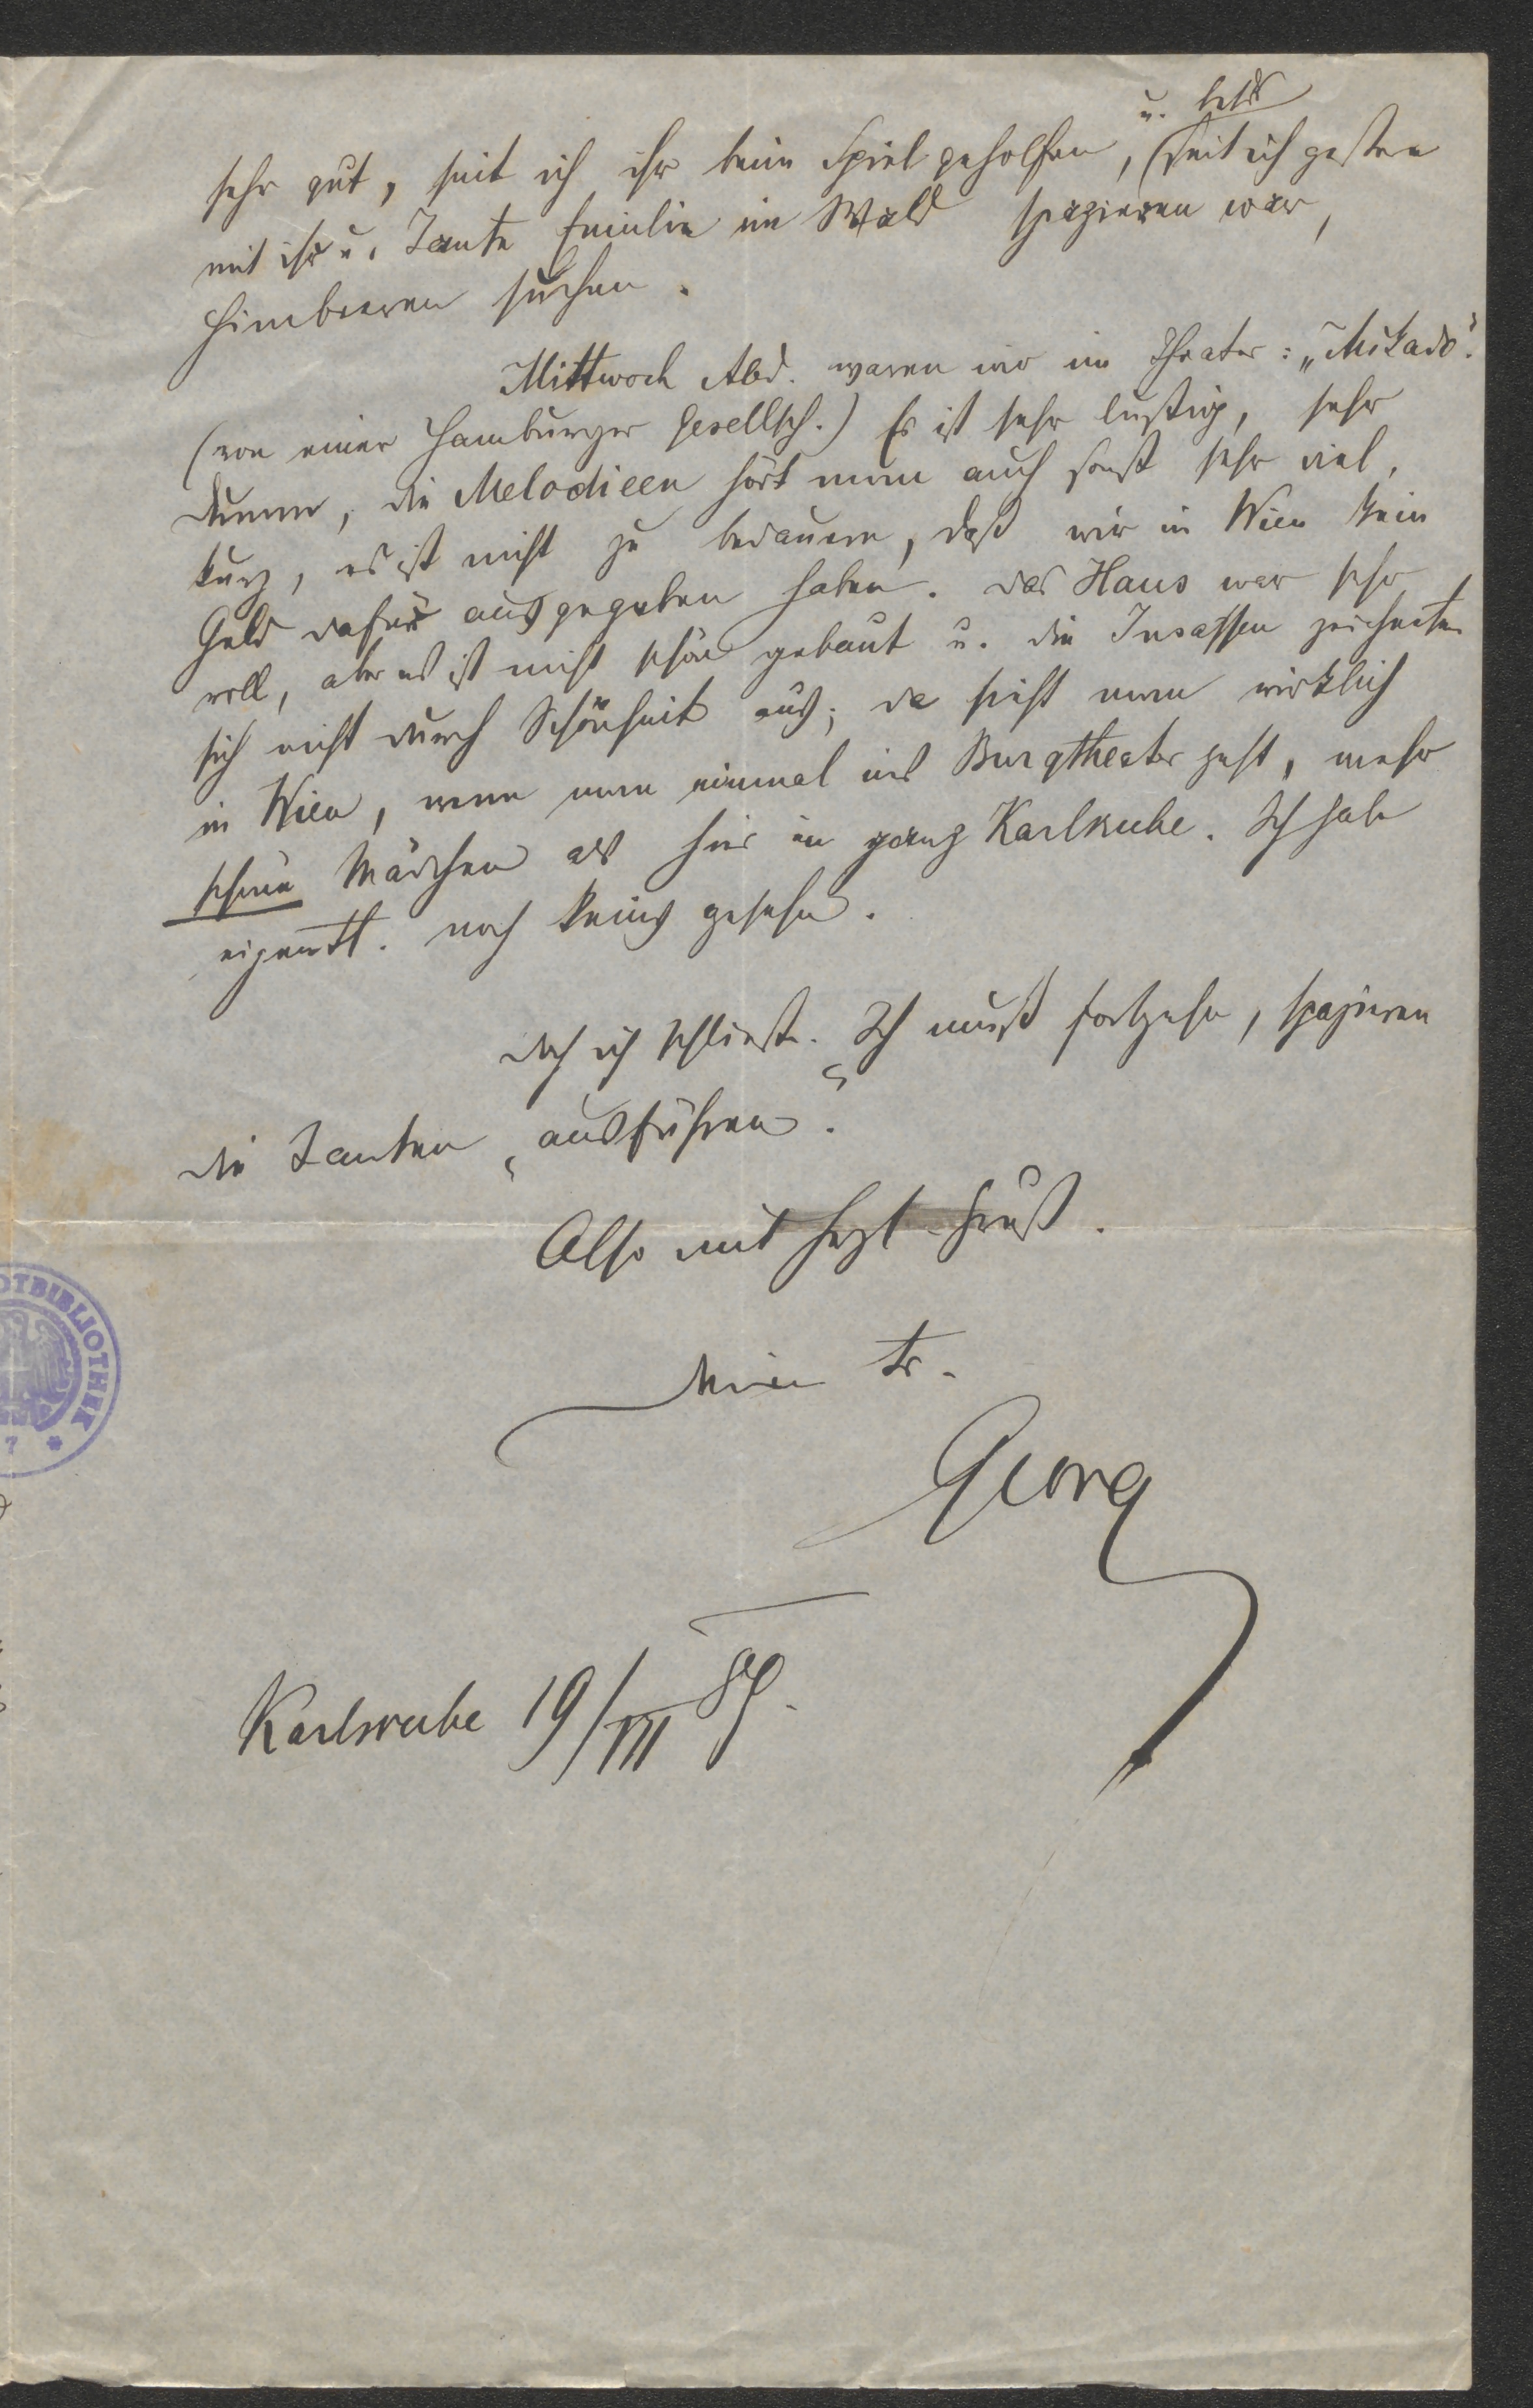 u. bes.
sehr gut, seit ich ihr beim Spiel geholfen, (seit ich gestern
mit ihr u. Tante Emilie im Wald spazieren war,
Himbeeren suchen.
Mittwoch Abd. waren wir im Theater: „Mikado".
(von einer Hamburger Gesellsch.) Es ist sehr lustig, sehr
dumm, die Melodieen hört man auch sonst sehr viel,
kurz, es ist nicht zu bedauern, daß wir in Wien kein
Geld dafür ausgegeben haben. Das Haus war sehr
voll, aber es ist nicht schön gebaut u. die Insassen zeichneten
sich nicht durch Schönheit aus; da sieht man wirklich
in Wien, wenn man einmal ins Burgtheater geht, mehr
schöne Mädchen als hier in ganz Karlsruhe. Ich habe
eigentl. noch keins gesehen.
Doch ich schließe. Ich muß fortgehn, spazieren
die Tanten „ausführen".
Also mit herzl. Gruß.
Dein tr.
Georg
Karlsruhe 19/VII 89.
BIBLIOTHEK
7 *